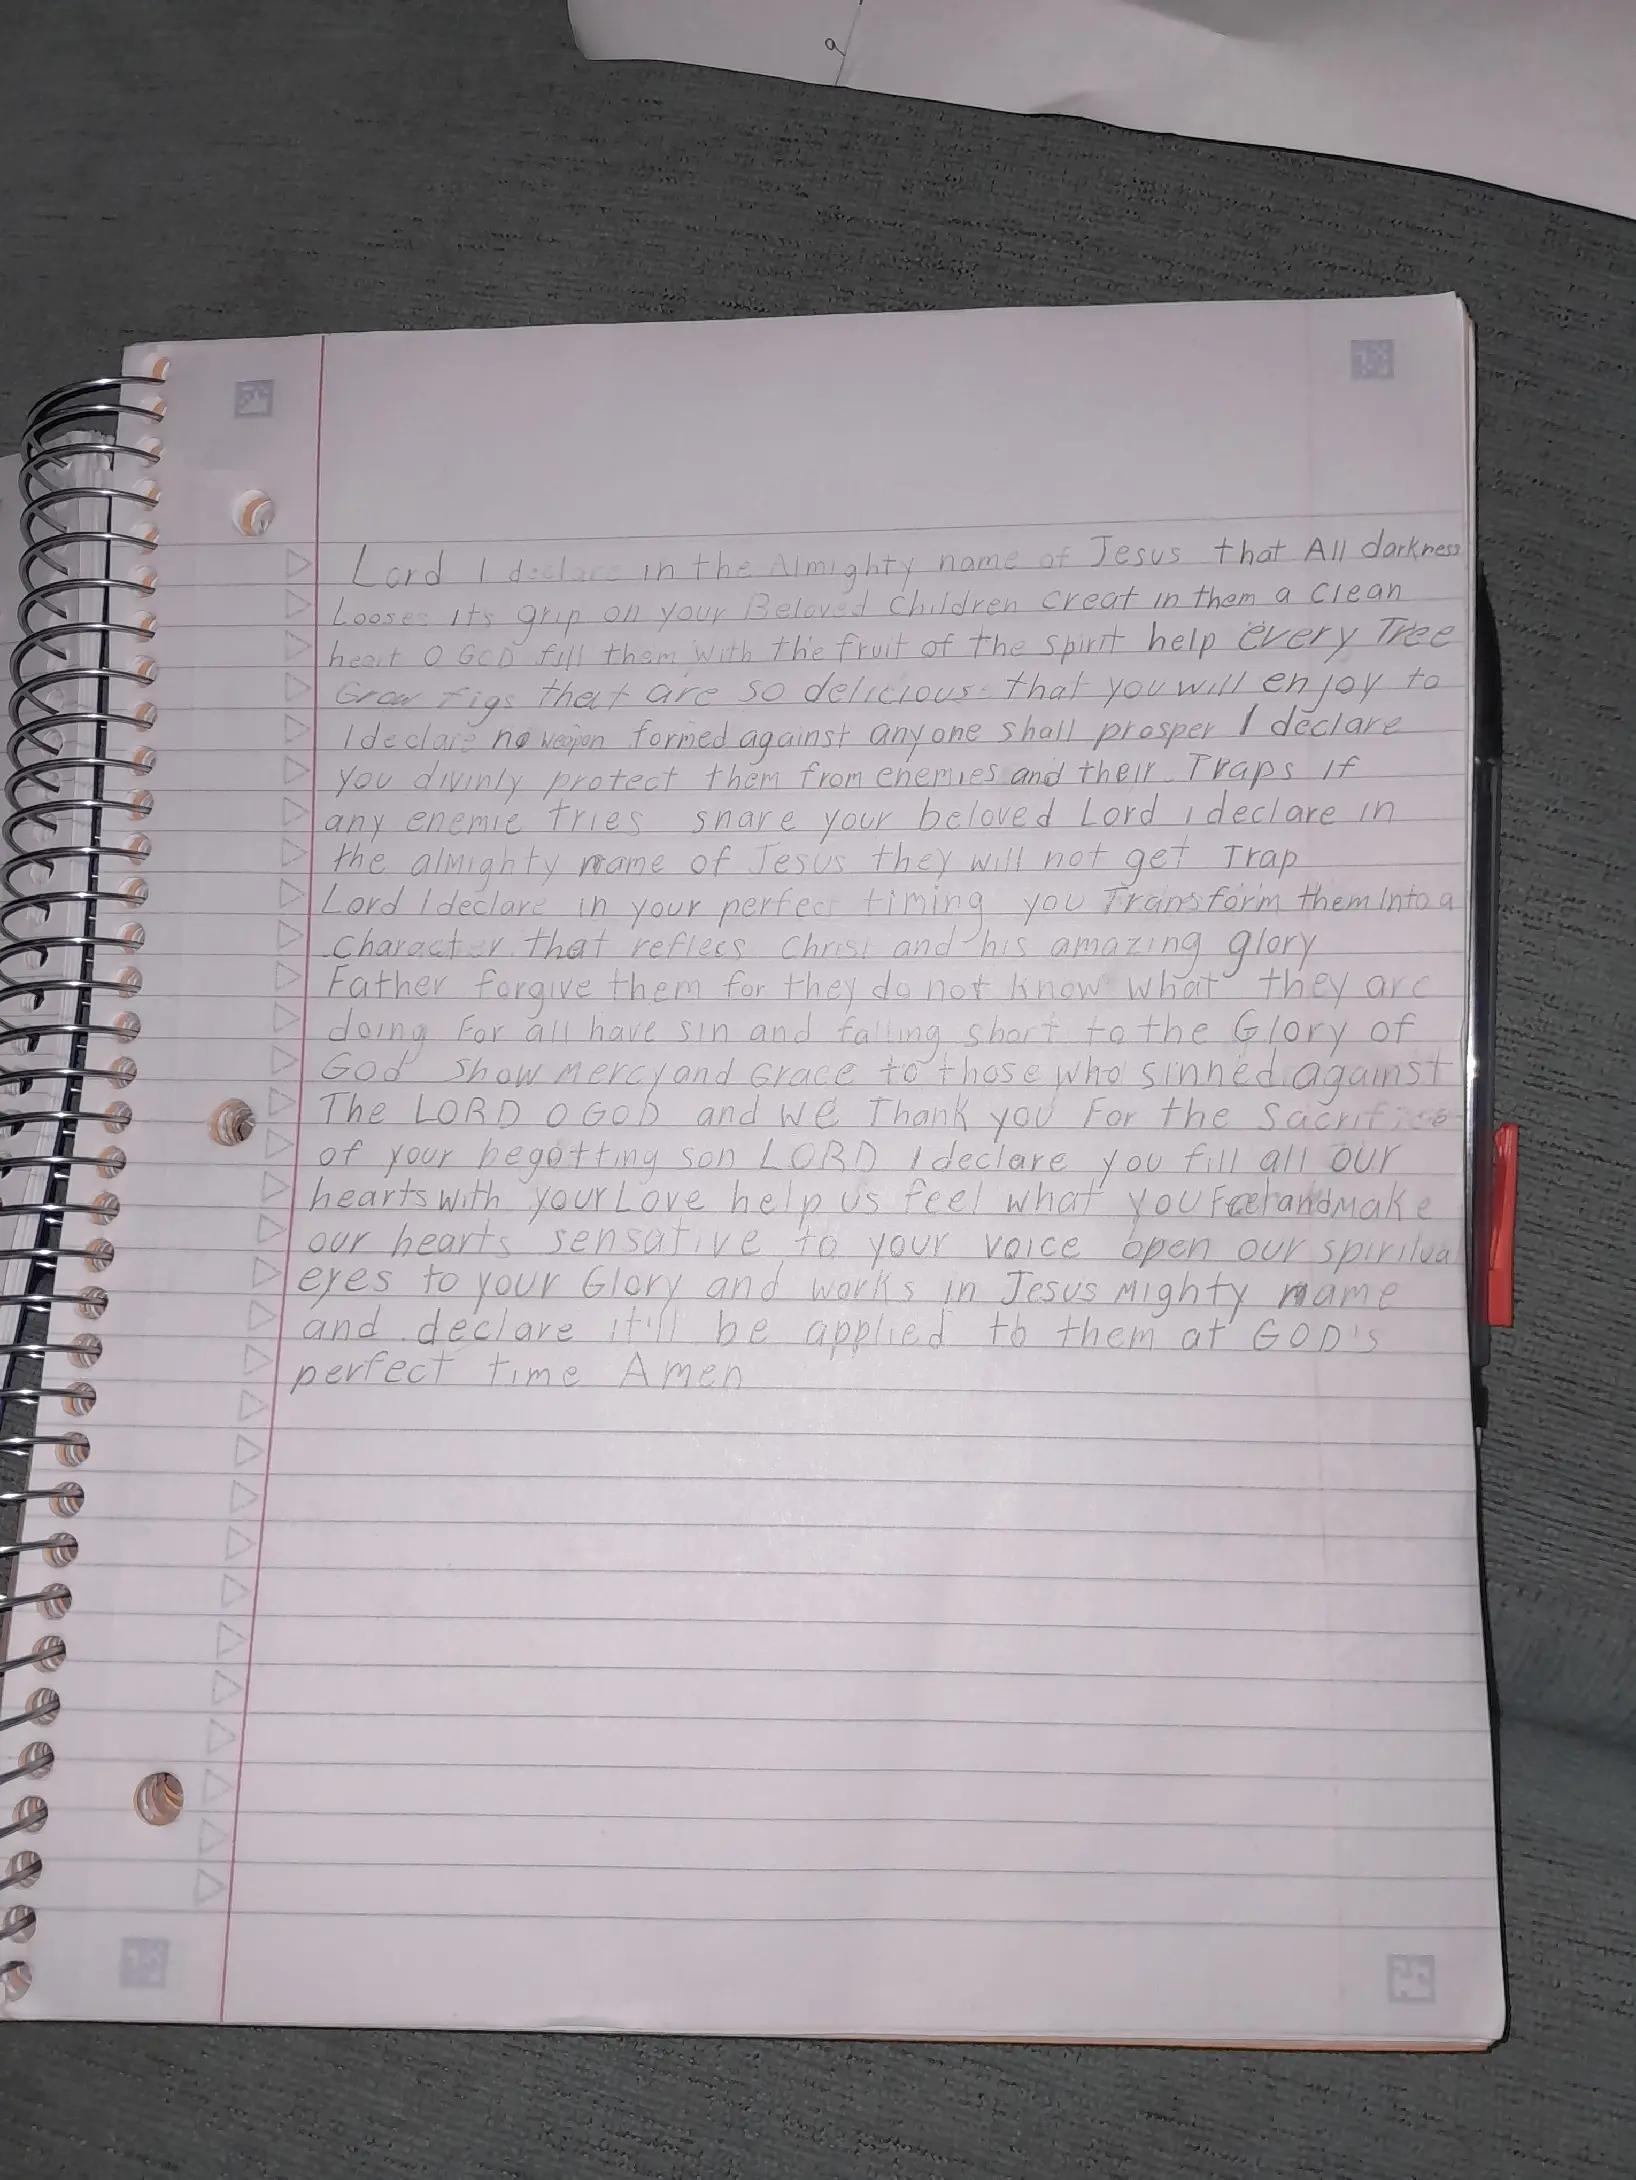 Lord I declare in the Almighty name of Jesus that All darkness
Looses its grip on your Beloved Children Creat in them a Clean
heart O GOD fill them with the fruit of the spirit help every Tree
Grow Figs that are so delicious that you will enjoy to
I declare no weapon formed against anyone shall prosper I declare
you divinly protect them from enemies and their Traps If
any enemie tries snare your beloved Lord i declare in
the almighty name of Jesus they will not get Trap
Lord I declare in your perfect timing you Transform them Into a
Character that reflecs Christ and his amazing glory
Father forgive them for they do not know what they are
doing For all have sin and falling short to the Glory of
God Show Mercy and Grace to those who sinned against
The LORD O GOD and we Thank you For the Sacrifice
of your begotting son LORD I declare you fill all our
hearts with your Love help us feel what you Feel and Make
our hearts sensative to your voice open our spiritual
eyes to your Glory and works in Jesus Mighty name
and declare it'll be applied to them at GOD's
perfect time Amen